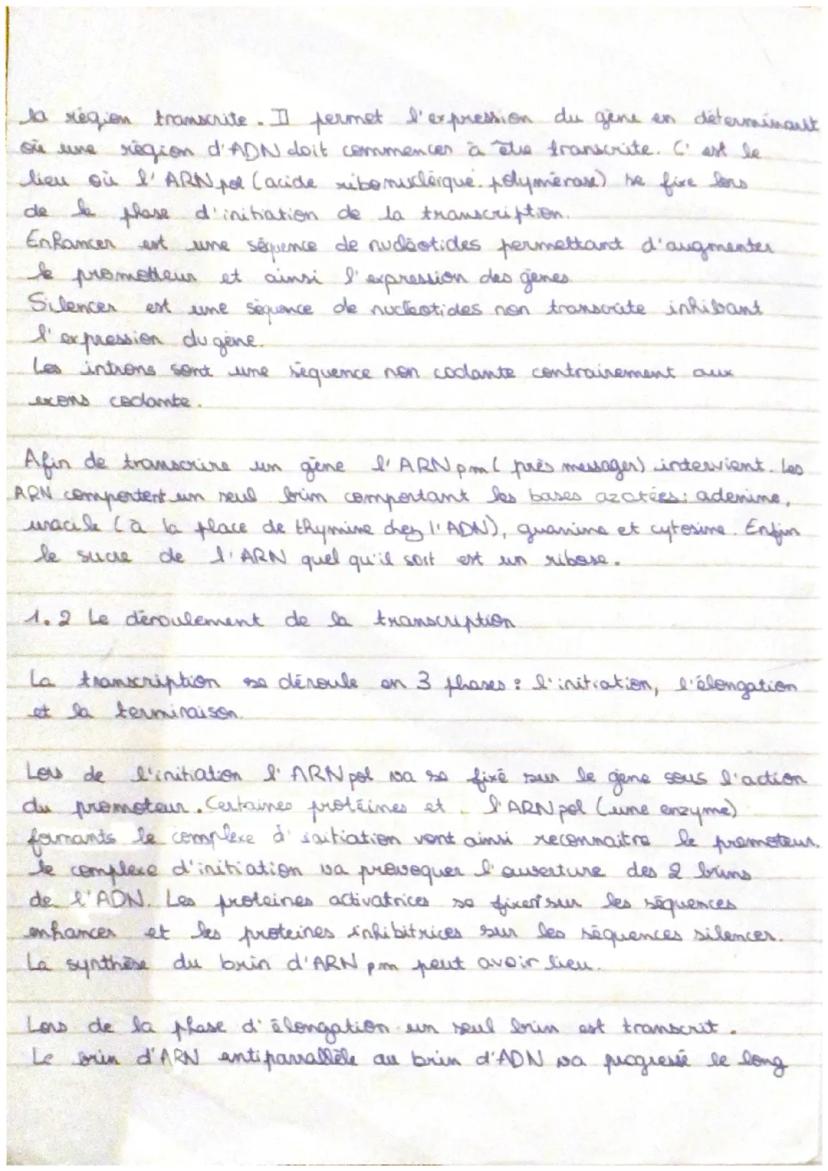 la région transcrite. Il permet l'expression du gène en déterminant
où une région d'ADN doit commencer à être transcrite. C'est le
lieu où l'ARN pol (acide ribonucléique polymérase) se fixe lors
de la phase d'initiation de la transcription.
Enhancer est une séquence de nucléotides permettant d'augmenter
le promotteur et ainsi l'expression des gènes
Silencer est une séquence de nucléotides non transcrite inhibant
l'expression du gène.
Les introns sont une séquence non codante contrairement aux
exons codante.
Afin de transcrire un gène l'ARN pm (près messager) intervient. Les
ARN comportent un seul brin comportant les bases azotées: adenine,
uracile (à la place de thymine chez l'ADN), guanine et cytosine. Enfin
le sucre de l'ARN quel qu'il soit est un ribose.
1.2 Le déroulement de la transcription
La transcription se déroule en 3 phases : l'initiation, l'élongation
et la terminaison.
Lors de l'initiation l'ARN pol va se fixé sur le gène sous l'action
du promoteur. Certaines protéines et l'ARN pol (une enzyme)
formants le complexe d'initiation vont ainsi reconnaitre le promoteur.
le complexe d'initiation va provoquer l'ouverture des 2 brins
de l'ADN. Les proteines activatrices se fixent sur les séquences
enhancer et les proteines inhibitrices sur les séquences silencer.
La synthèse du brin d'ARN pm peut avoir lieu.
Lors de la phase d'élongation un seul brin est transcrit.
Le brin d'ARN antiparrallèle au brin d'ADN va progressé le long